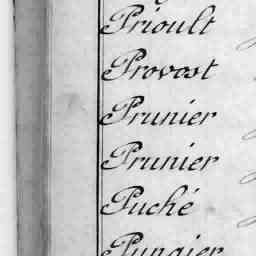 Prioult
Provost
Prunier
Prunier
Puché